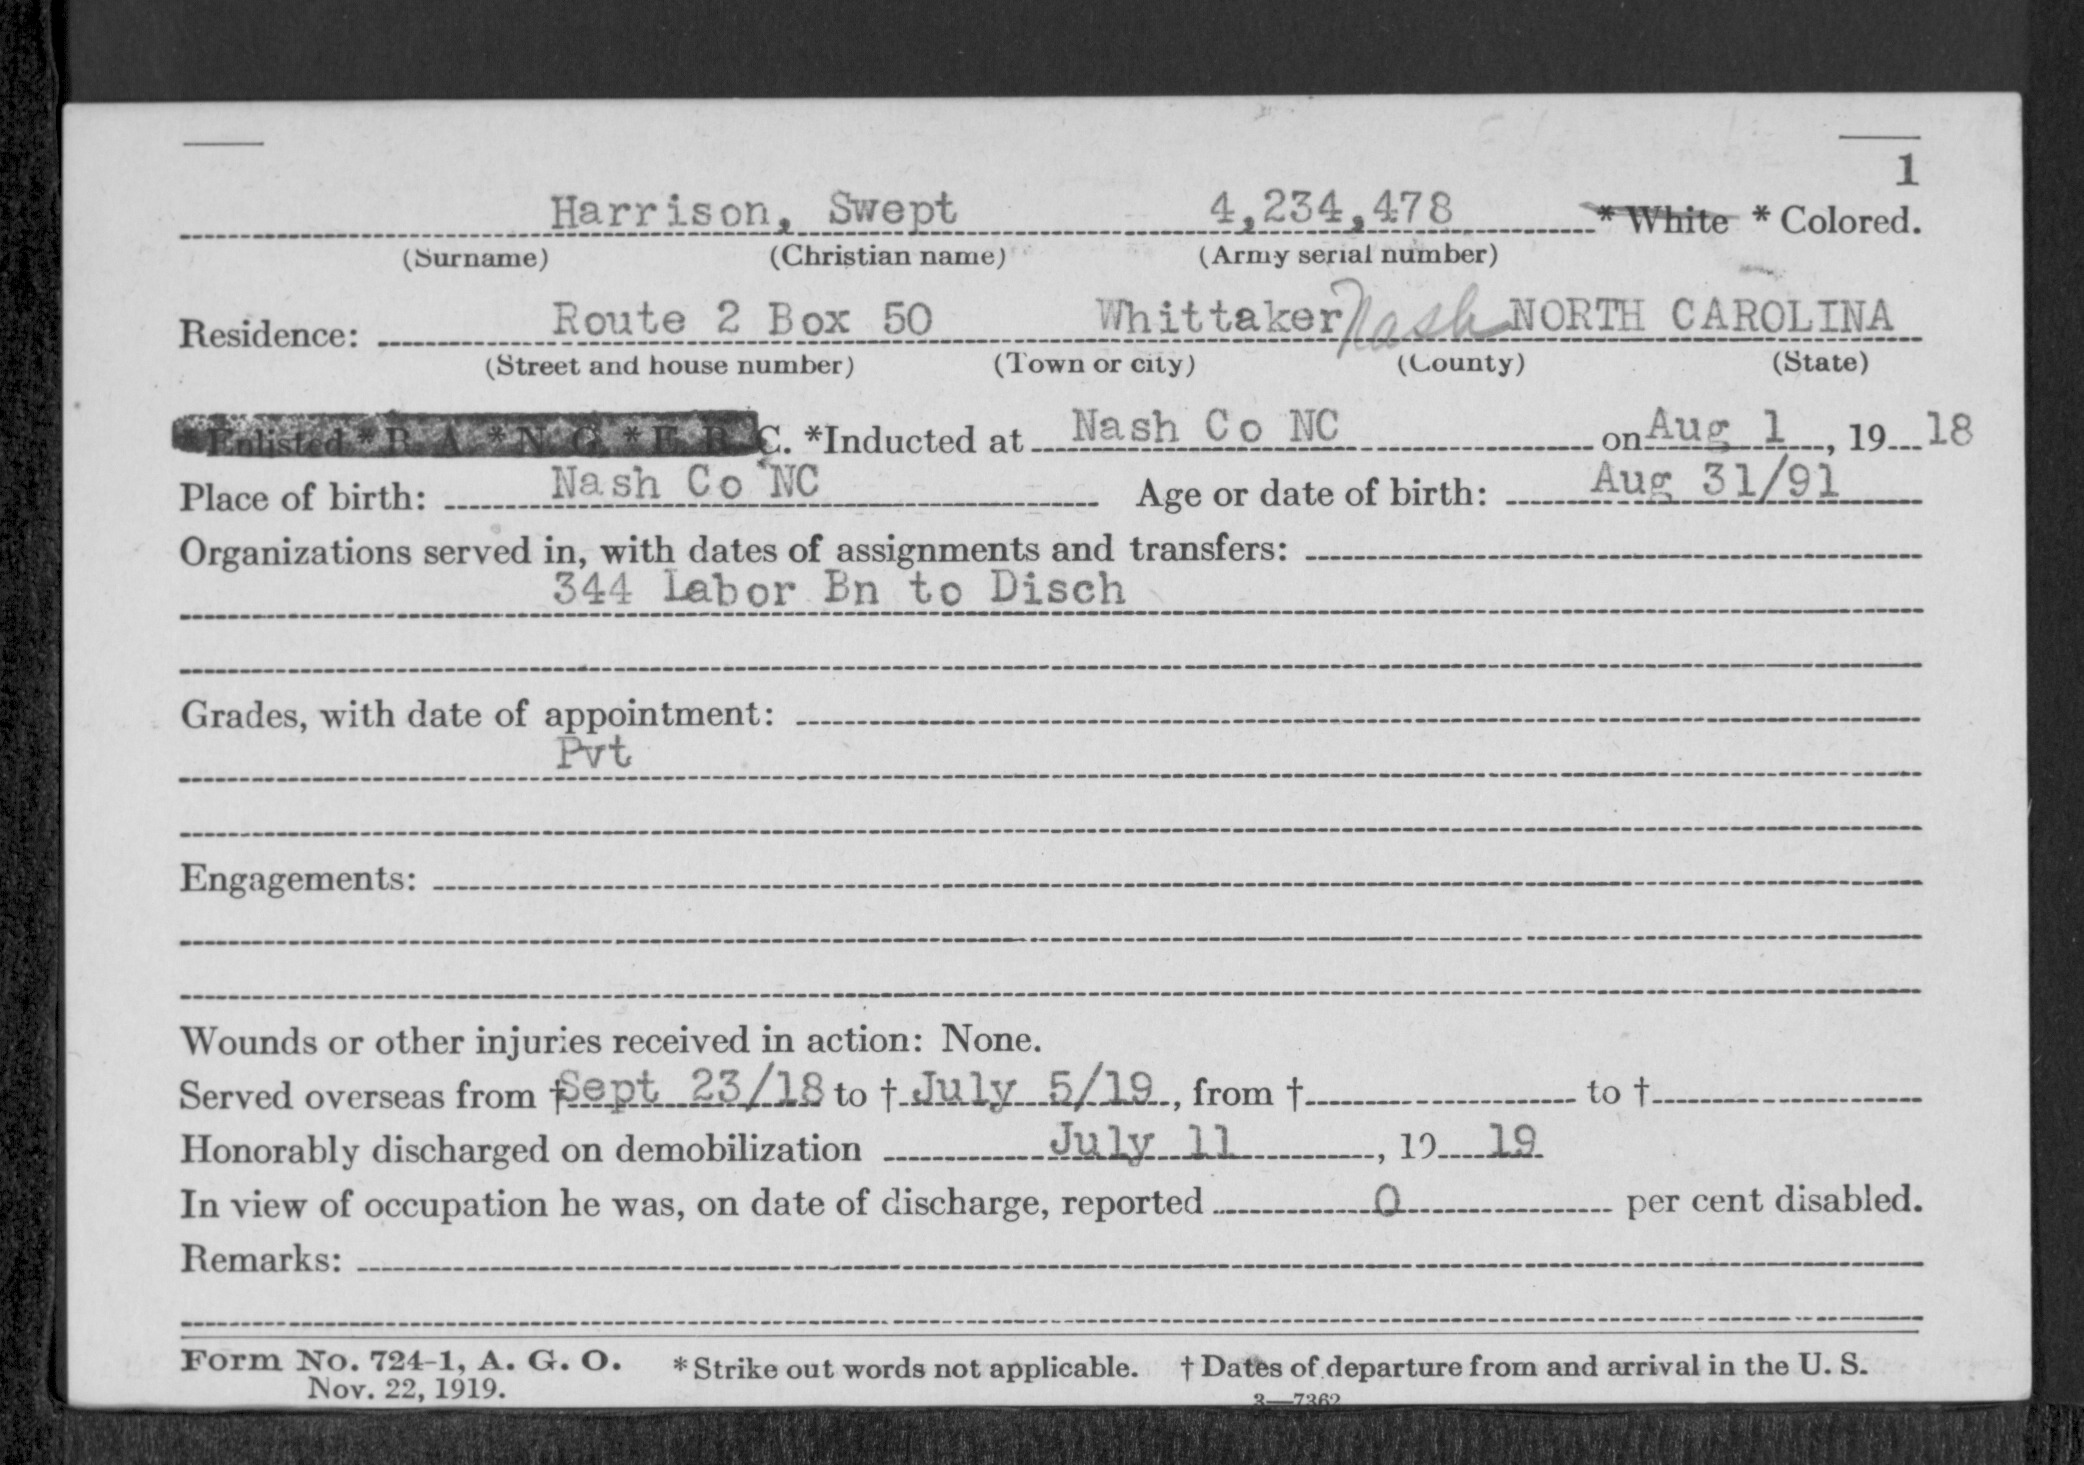 1
Harrison, Swept 4,234,478 * White * Colored.
(Surname) (Christian name) (Army serial number)
Residence: Route 2 Box 50 Whittaker Nash NORTH CAROLINA
(Street and house number) (Town or city) (County) (State)
*Enlisted *R. A. *N. G. *E. R. C. *Inducted at Nash Co NC on Aug 1, 1918
Place of birth: Nash Co NC Age or date of birth: Aug 31/91
Organizations served in, with dates of assignments and transfers:
344 Labor Bn to Disch
Grades, with date of appointment:
Pvt
Engagements:
Wounds or other injuries received in action: None.
Served overseas from † Sept 23/18 to † July 5/19, from † to †
Honorably discharged on demobilization July 11, 1919
In view of occupation he was, on date of discharge, reported 0 per cent disabled.
Remarks:
Form No. 724-1, A. G. O. * Strike out words not applicable. † Dates of departure from and arrival in the U. S.
Nov. 22, 1919.
3—7362